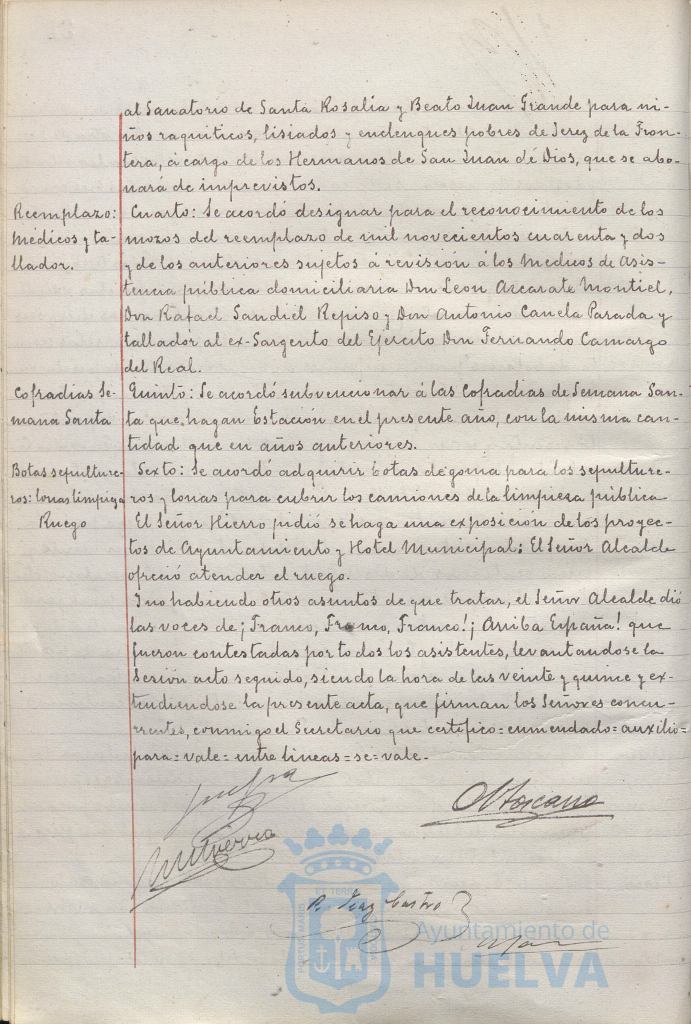 al Sanatorio de Santa Rosalia y Beato Juan Grande para ni-
ños raquiticos, lisiados y enclenques pobres de Jerez de la Fron-
tera, á cargo de los Hermanos de San Juan de Dios, que se abo-
nará de imprevistos.
Reemplazo:
Médicos y ta-
llador.
Cuarto: Se acordó designar para el reconocimiento de los
mozos del reemplazo de mil novecientos cuarenta y dos
y de los anteriores sujetos á revisión á los Medicos de Asis-
tencia pública domiciliaria Don Leon Azcarate Montiel,
Don Rafael Sandiel Repiso y Don Antonio Canela Parada y
tallador al ex-Sargento del Ejercito Don Fernando Camargo
del Real.
Cofradias Se-
mana Santa
Quinto: Se acordó subvencionar á las Cofradias de Semana San-
ta que hagan Estación en el presente año, con la misma can-
tidad que en años anteriores.
Botas sepulture-
ros: lonas limpieza
Ruego
Sexto: Se acordó adquirir botas de goma para los sepulture-
ros y lonas para cubrir los camiones de la limpieza pública
El Señor Hierro pidió se haga una exposición de los proyec-
tos de Ayuntamiento y Hotel Municipal; El Señor Alcalde
ofreció atender el ruego.
Y no habiendo otros asuntos de que tratar, el Señor Alcalde dió
las voces de ¡Franco, Franco, Franco!; Arriba España! que
fueron contestadas por todos los asistentes, levantandose la
Sesión acto seguido, siendo la hora de las veinte y quince y ex-
tendiendose la presente acta, que firman los Señores concu-
rrentes, conmigo el Secretario que certifico=enmendado=auxilio=
para=vale=entre lineas=se=vale.
Castro
PORTUS MARIS
ET TERRAE
Ayuntamiento de
HUELVA